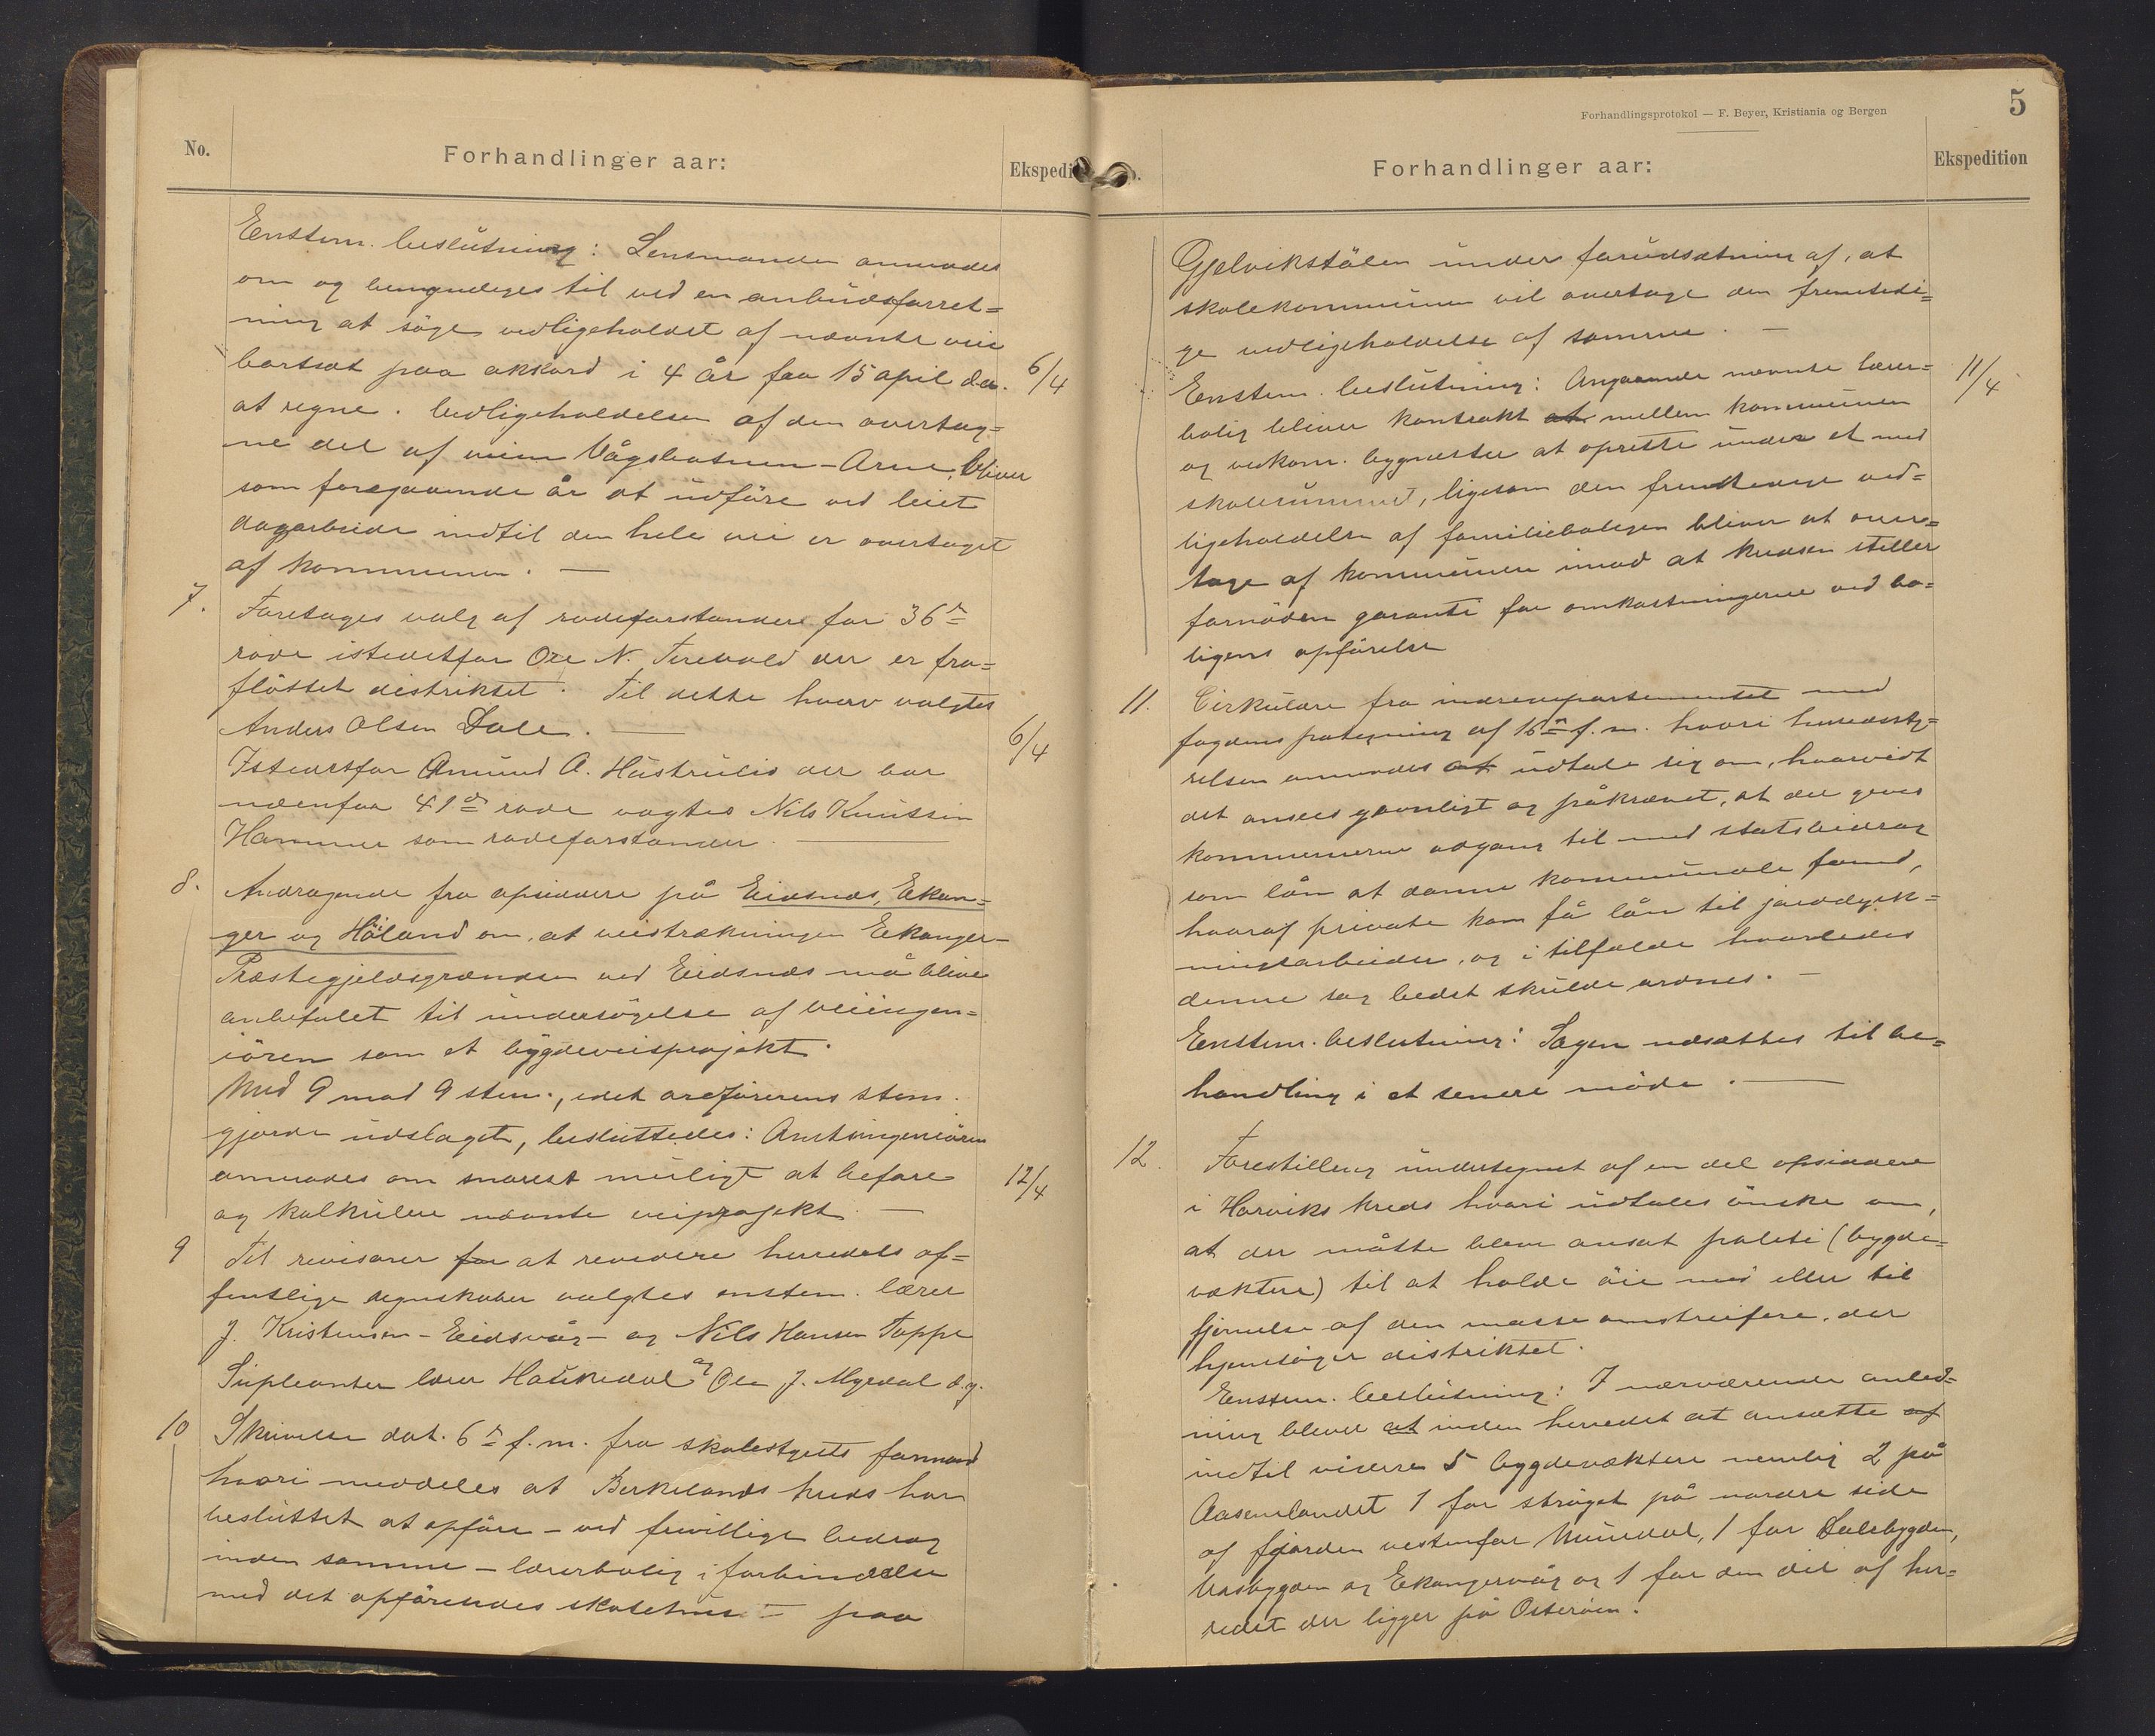 No.
Forhandlinger aar:
Ekspedi
Enstem. beslutning: Lensmanden anmodes
om og bemyndiges til ved en anbudsforret=
ning at söge vedligeholdet af nævnte vei
bortsat paa akkord i 4 år fra 15 april d.a. 6/4
at regne. Vedligeholdelsen af den overtag=
ne del af veien Vågsbotnen-Arne, bliver
som foregaaende år at udföre ved leiet
dagarbeide indtil den hele vei er overtaget
af kommunen. —
7. Foretages valg af rodeforstander for 36te
rode istedetfor Ole N. Terevold der er fra=
flöttet distriktet. Til dette hverv valgtes
Anders Olsen Dale. — 6/4
Istedetfor Amund A. Hustrulid der bor
udenfor 41de rode vagtes Nils Knutsen
Hammer som rodeforstander. —
8. Andragende fra opsiddere på Eidsnes, Eikan=
ger og Höland om, at veistrækningen Eikanger-
Præstegjeldsgrændsen ved Eidsnes må blive
anbefalet til undersögelse af veiingen=
iören som et bygdeveisprojekt.
Med 9 mod 9 stem., idet ordförerens stem.
gjorde udslaget, besluttedes: Amtsingeniören
anmodes om snarest muligt at befare 12/4
og kalkulere nævnte veiprojekt. —
9 Til revisorer for at revidere herredets of=
fentlige regnskaber valgtes enstem. lærer
J. Kristensen - Eidsvåg - og Nils Hansen Toppe
Supleanter lærer Haukedal og Ole J. Myrdal d.y.
10 Skrivelse dat. 6te f.m. fra skolestyrets formand
hvori meddeles at Birkelands kreds har
besluttet at opföre - ved frivillige bidrag
inden samme - lærerbolig i forbindelse
med det opförendes skolehus - paa
Forhandlingsprotokol — F. Beyer, Kristiania og Bergen
5
Forhandlinger aar:
Ekspedition
Gjelvikstölen under forudsætning af, at
skolekommunen vil overtage den fremtidi=
ge vedligeholdelse af samme. —
Enstem. beslutning: Angaaende nævnte lærer= 11/4
bolig bliver kontrakt at mellem kommunen
og vedkom. bygmester at oprette under et med
skolerummet, ligesom den fremtidige ved=
ligeholdelse af familieboligen bliver at over=
tage af kommunen imod at kredsen stiller
fornöden garanti for omkostningerne ved bo=
ligens opförelse
11. Cirkulære fra indredepartementet med
fogdens påtegning af 16de f.m. hvori herredssty=
relsen anmodes at udtale sig om, hvorvidt
det ansees gavnligt og påkrævet, at der gives
kommunerne adgang til med statsbidrag
som lån at danne kommunale fond,
hvoraf private kan få lån til jorddyrk=
ningsarbeider, og i tilfælde hvorledes
denne sag bedst skulde ordnes. —
Enstem. beslutning: Sagen udsættes til be=
handling i et senere möde. —
12. Forestilling undertegnet af en del opsiddere
i Horviks kreds hvori udtales önske om,
at der måtte blive ansat politi (bygde=
vektere) til at holde öie med eller til
fjernelse af den masse omstreifere, der
hjemsöger distriktet.
Enstem. beslutning: I nærværende anled=
ning bliver at inden herredet at ansætte af
indtil videre 5 bygdevæktere nemlig 2 på
Aasenelandet 1 for ströget på nordre side
af fjorden vestenfor Mundal, 1 for Dalebygden,
Aasbygden og Eikangervåg og 1 for den del af her=
redet der ligger på Osteröen.